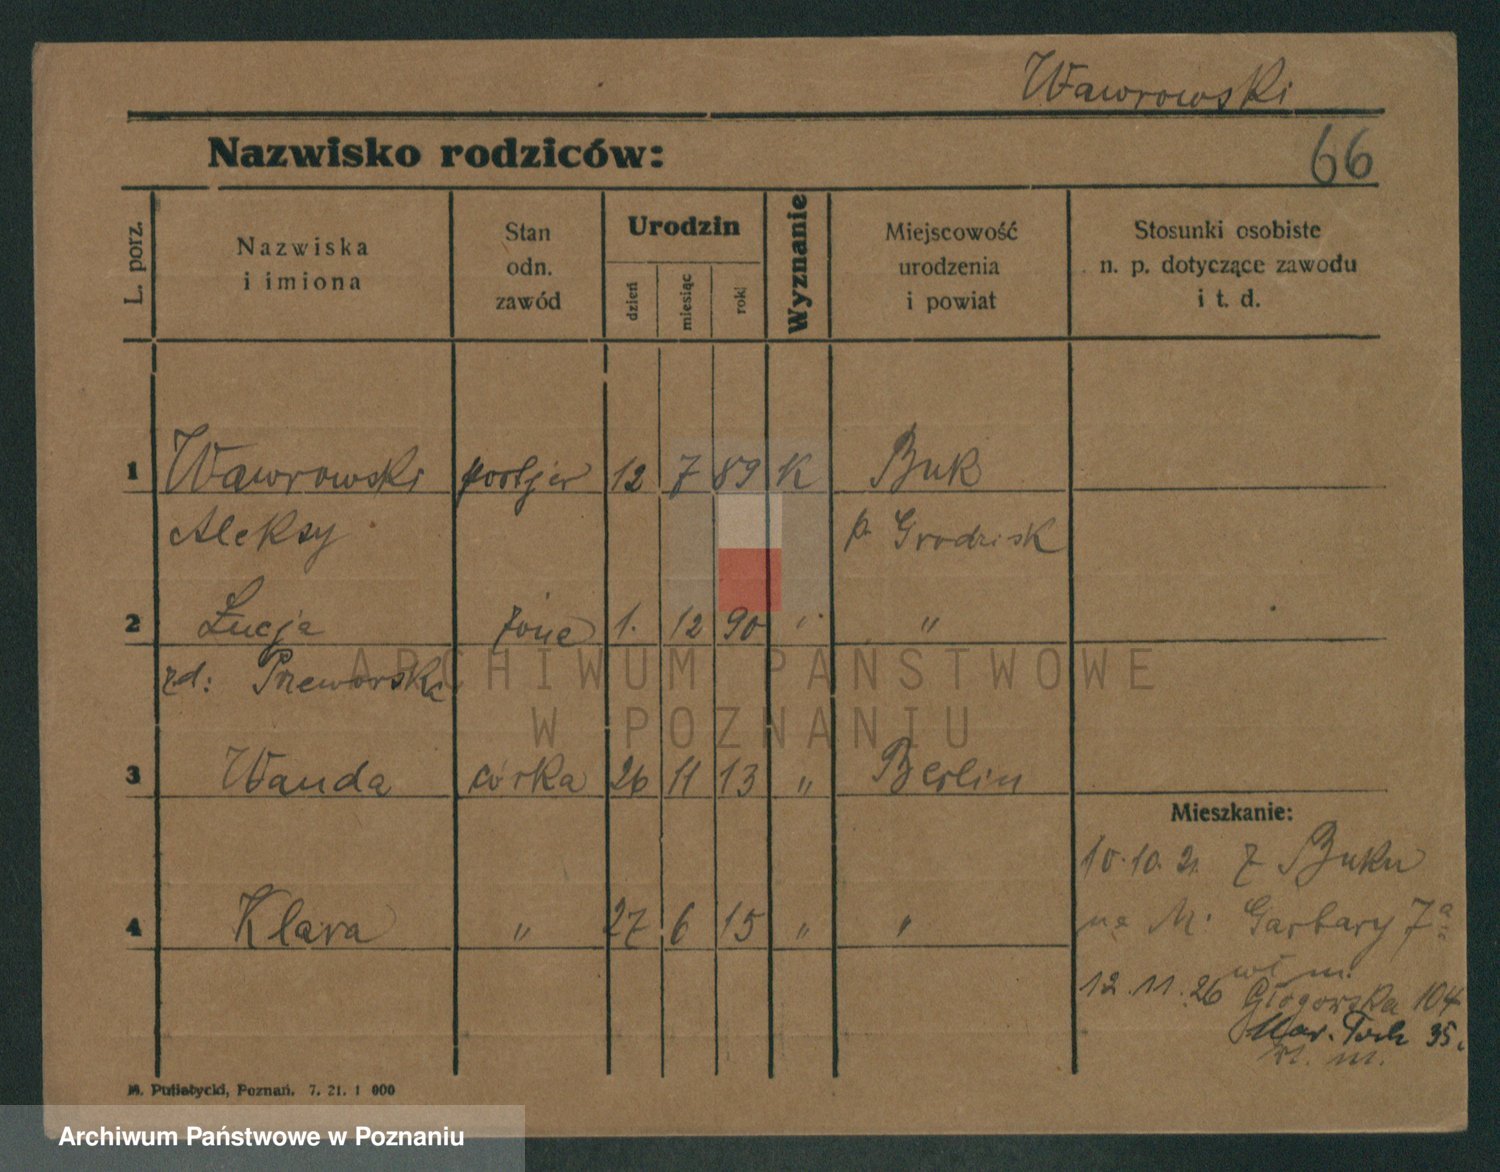 Wawrowski
Nazwisko rodziców:
66
L. porz.
Nazwiska
i imiona
Stan
odn.
zawód
Urodzin
dzień
miesiąc
rok
Wyznanie
Miejscowość
urodzenia
i powiat
Stosunki osobiste
n. p. dotyczące zawodu
i t. d.
1 Wawrowski portjer 12 7 89 K Buk
Aleksy p. Grodzisk
2 Łucja żona 1. 12 90 " "
zd: Przeworska
3 Wanda córka 26 11 13 " Berlin
Mieszkanie:
10.10.21 z Buku
4 Klara " 27 6 15 " "
na M. Garbary 7a
wł m.
12.11.26 Głogowska 104
Mar. Foch 35.
wł. m.
M. Putiatycki, Poznań. 7. 21. 1 000
ARCHIWUM PAŃSTWOWE
W POZNANIU
Archiwum Państwowe w Poznaniu